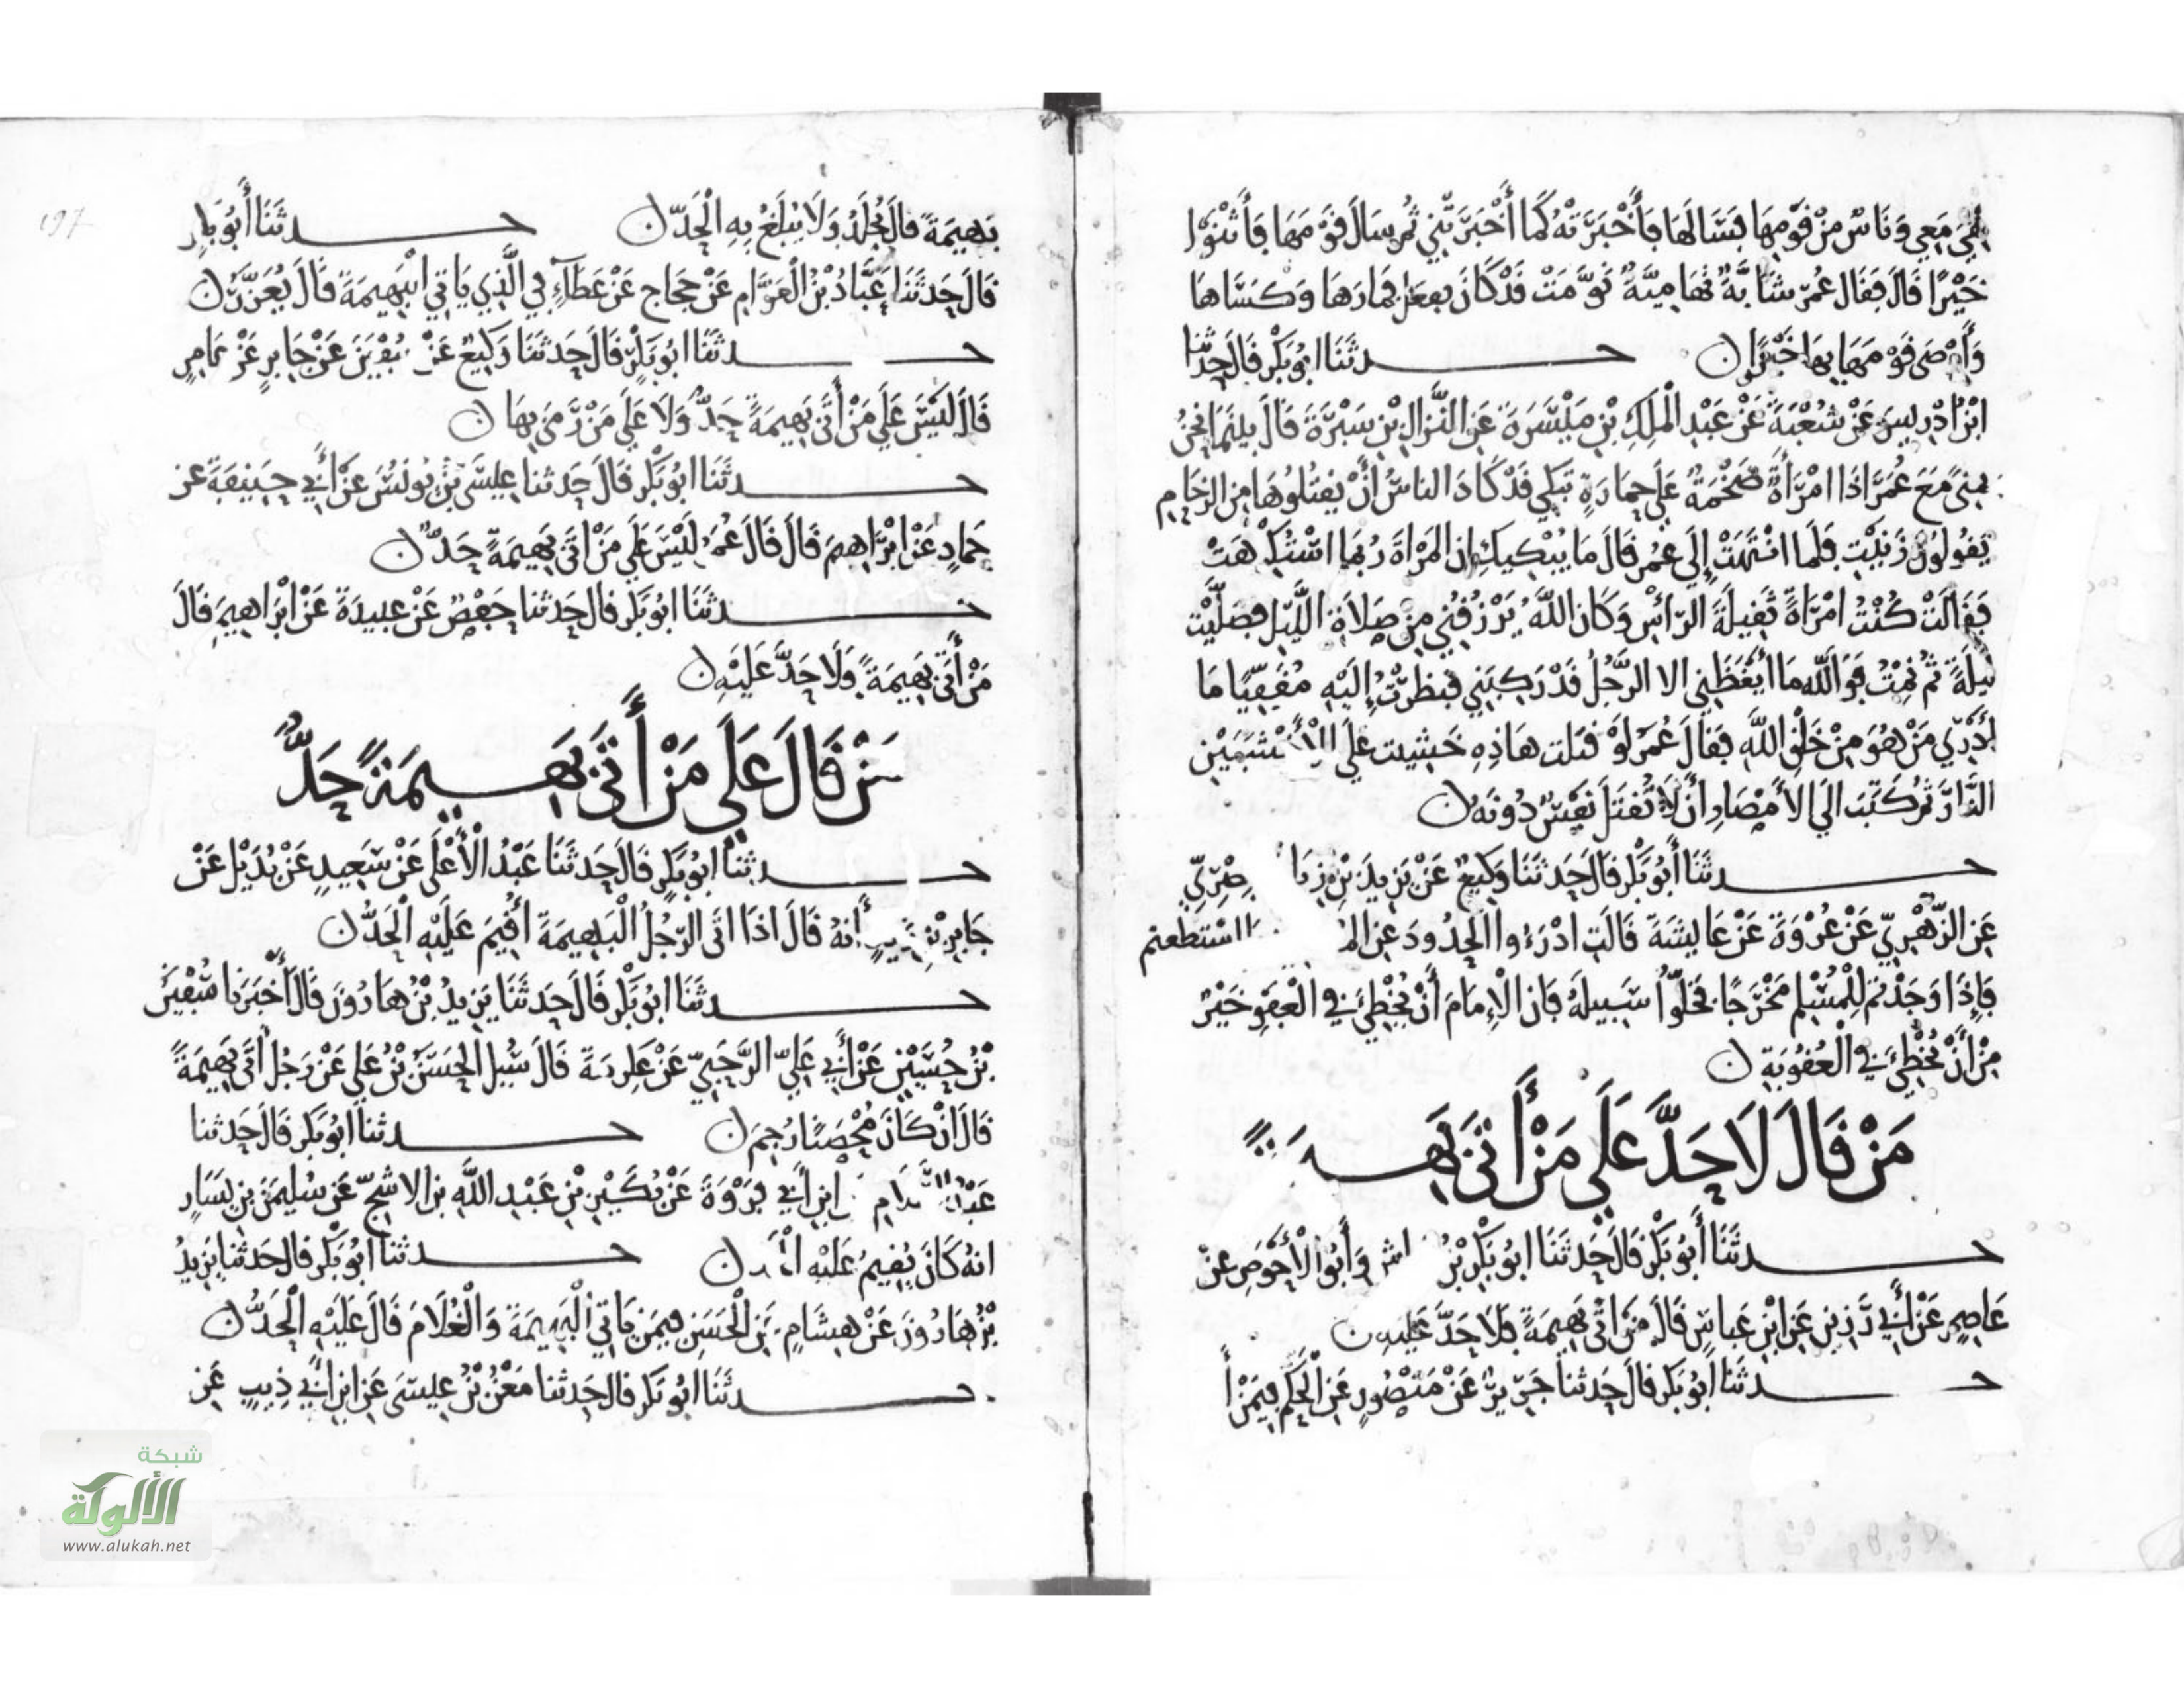 هي معي وناس من قومها فسالها فأخبرته كما أخبرتني ثم سال قومها فأثنوا
خيرا قال فقال عمر شابة تهامية نومت قد كان يفعل فمارها وكساها
وأوصى قومها بها خيرا
حدثنا ابو بكر قال حدثنا
ابن ادريس عن شعبة عن عبد الملك بن ميسرة عن النزال بن سبرة قال بينما نحن
بمنى مع عمر اذا امرأة ضخمة على حمارة تبكي قد كاد الناس أن يقتلوها من الزحام
يقولون زنيت فلما انتهت إلى عمر قال ما يبكيك ان المراة ربما استكرهت
فقالت كنت امراة ثقيلة الرأس وكان الله يرزقني من صلاة الليل فصليت
ليلة ثم نمت فوالله ما أيقظني الا الرجل قد ركبني فنظرت إليه مقفيا ما
ادري من هو من خلق الله فقال عمر لو قتلت هاذه خشيت على الأخشبين
النار ثم كتب الى الأمصار أن لا تقتل نفس دونه
حدثنا أبو بكر قال حدثنا وكيع عن يزيد بن زيا صري
عن الزهري عن عروة عن عايشة قالت ادرءوا الحدود عن الم استطعتم
فإذا وجدتم للمسلم مخرجا فخلوا سبيله فان الإمام أن يخطئ في العفو خير
من أن يخطئ في العقوبة
من قال لا حد على من أتى بهيمة
حدثنا أبو بكر قال حدثنا ابو بكر بن اش وأبو الأحوص عن
عاصم عن أبي رزين عن ابن عباس قال من اتى بهيمة فلا حد عليه
حدثنا ابو بكر قال حدثنا جرير عن منصور عن الحكم فيمن أ
197
بهيمة قال يجلد ولا يبلغ به الحد
حدثنا أبو بكر
قال حدثنا عباد بن العوام عن حجاج عن عطاء في الذي ياتي البهيمة قال يعزر
حدثنا ابو بكر قال حدثنا وكيع عن سفين عن جابر عن عامر
قال ليس على من أتى بهيمة حد ولا على من رمى بها
حدثنا ابو بكر قال حدثنا عيسى بن يونس عن أبي حنيفة عن
حماد عن ابراهيم قال قال عمر ليس على من اتى بهيمة حد
حدثنا ابو بكر قال حدثنا حفص عن عبيدة عن ابراهيم قال
من أتى بهيمة ولا حد عليه
من قال على من أتى بهيمة حد
حدثنا ابو بكر قال حدثنا عبد الأعلى عن سعيد عن بديل عن
جابر بن يد أنه قال اذا اتى الرجل البهيمة أقيم عليه الحد
حدثنا ابو بكر قال حدثنا يزيد بن هارون قال أخبرنا سفين
بن حسين عن أبي علي الرحبي عن عكرمة قال سيل الحسن بن علي عن رجل أتى بهيمة
قال ان كان محصنا رجم
حدثنا ابو بكر قال حدثنا
عبد السلام ابن أبي فروة عن بكير بن عبد الله بن الاشج عن سليمن بن يسار
انه كان يقيم عليه الحد
حدثنا ابو بكر قال حدثنا يزيد
بن هارون عن هشام عن الحسن فيمن ياتي البهيمة والغلام قال عليه الحد
حدثنا ابو بكر قال حدثنا معن بن عيسى عن ابن أبي ذيب عن
شبكة
الألوكة
www.alukah.net